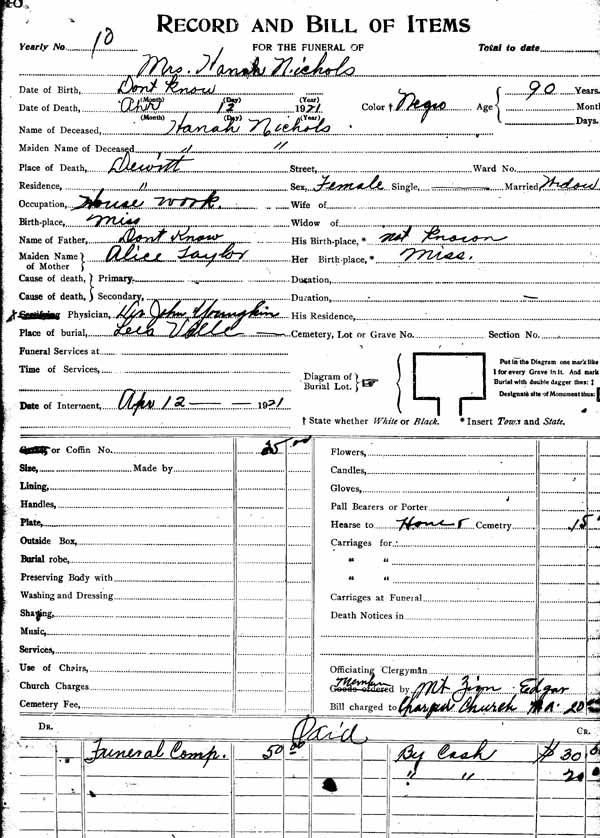 RECORD AND BILL OF ITEMS
Yearly No. 10 FOR THE FUNERAL OF Total to date
Mrs. Hanah Nichols
Date of Birth, Dont Know
(Month) (Day) (Year)
Date of Death, Apr 12 1921 Color † Negro Age 90 Years.
Months
Days.
(Month) (Day) (Year)
Name of Deceased, Hanah Nichols
Maiden Name of Deceased " "
Place of Death, Dewitt Street, Ward No.
Residence, " Sex, Female Single, Married Widow
Occupation, House work Wife of
Birth-place, Miss Widow of
Name of Father, Dont Know His Birth-place, * not known
Maiden Name of Mother Alice Taylor Her Birth-place, * Miss.
Cause of death, Primary, Duration,
Cause of death, Secondary, Duration,
Physician, John Youngkin His Residence,
Place of burial, Cemetery, Lot or Grave No. Section No.
Funeral Services at
Time of Services,
Diagram of Burial Lot.
Put in the Diagram one mark like
I for every Grave in it. And mark
Burial with double dagger thus: ‡
Designate site of Monument thus:
Date of Interment, Apr 12 1921
† State whether White or Black. * Insert Town and State.
or Coffin No. 35 00 Flowers,
Size, Made by Candles,
Lining, Gloves,
Handles, Pall Bearers or Porter
Plate, Hearse to Home & Cemetry 15
Outside Box, Carriages for:
Burial robe, " "
Preserving Body with " "
Washing and Dressing Carriages at Funeral
Shaving, Death Notices in
Music,
Services,
Use of Chairs, Officiating Clergyman
Church Charges Goods ordered by Mt Zion Edgar
Cemetery Fee, Bill charged to Charged Church
DR. Paid CR.
Funeral Comp. 50 00 By Cash $ 30
" " 20